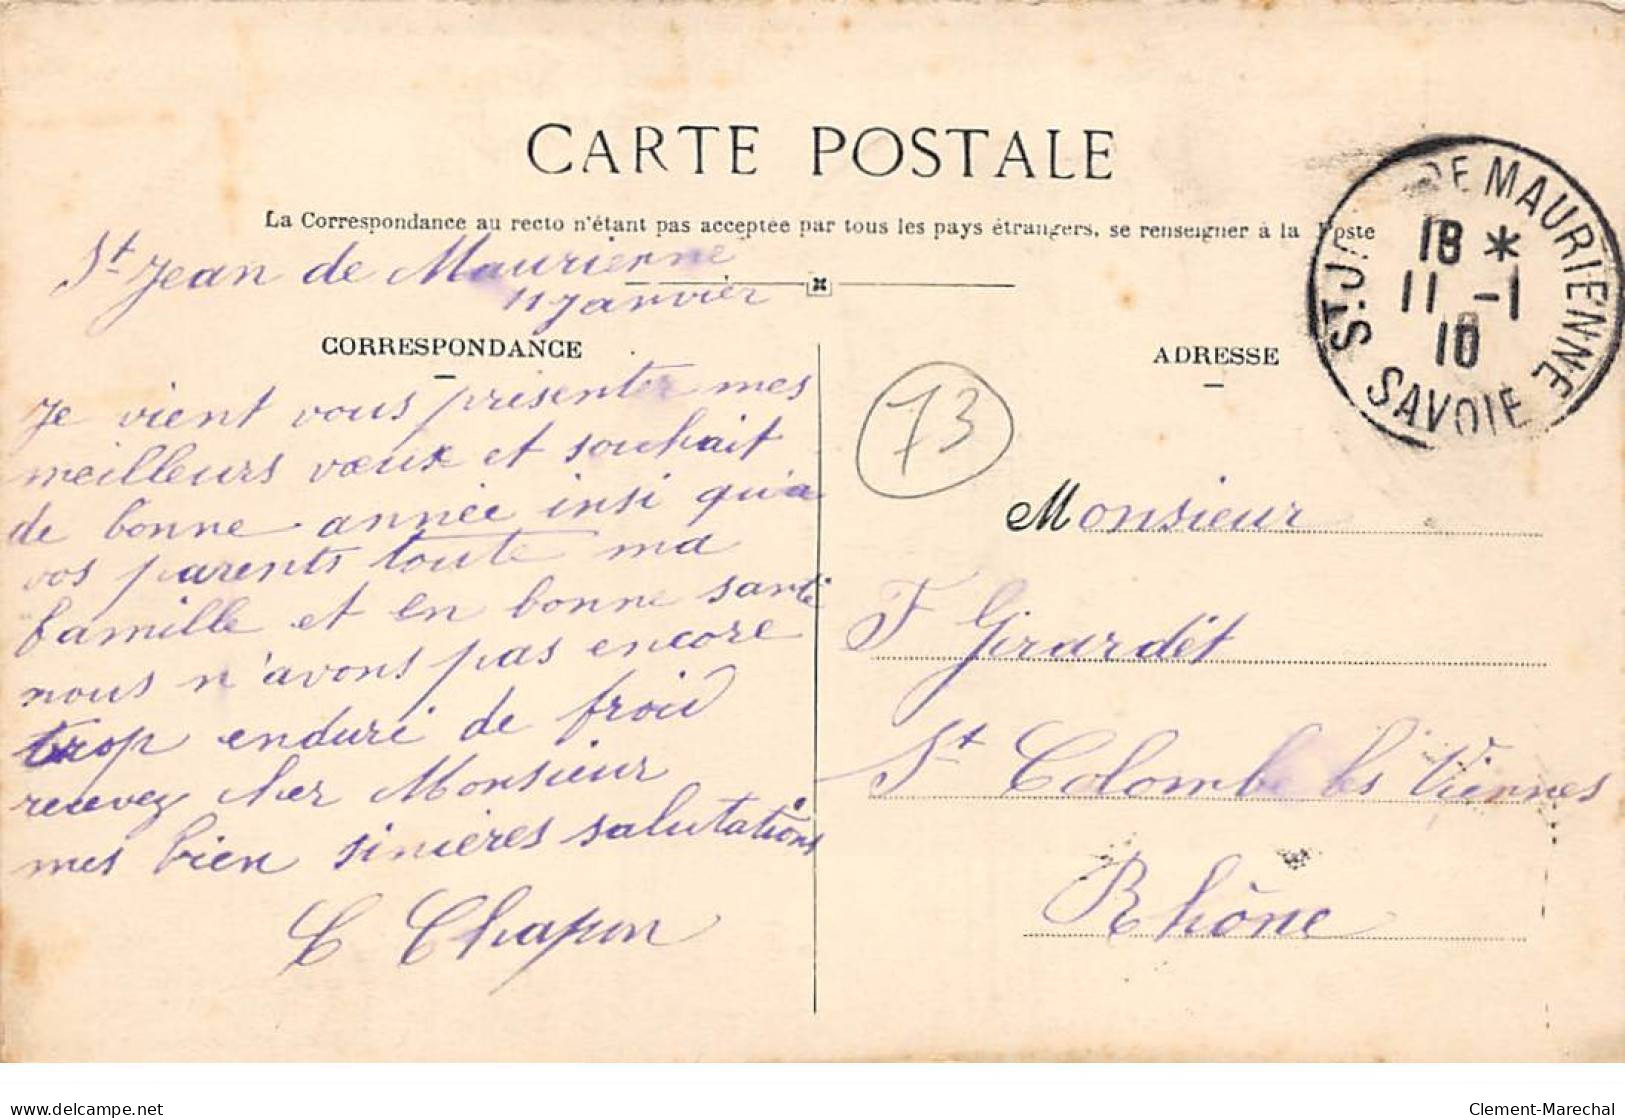 CARTE POSTALE
La Correspondance au recto n'étant pas acceptée par tous les pays étrangers, se renseigner à la Poste
St Jean de Maurienne
11 Janvier
CORRESPONDANCE
Je vient vous présenter mes
meilleurs vœux et souhait
de bonne année insi qu'a
vos parents toute ma
famille et en bonne santé
nous n'avons pas encore
trop enduré de froid
recevez cher Monsieur
mes bien sincères salutations
C Chapon
ST. DE MAURIENNE
18 *
11 -1
10
SAVOIE
ADRESSE
73
Monsieur
F Girardet
St Colombe les Viennes
Rhône
www.delcampe.net
Clement-Marechal